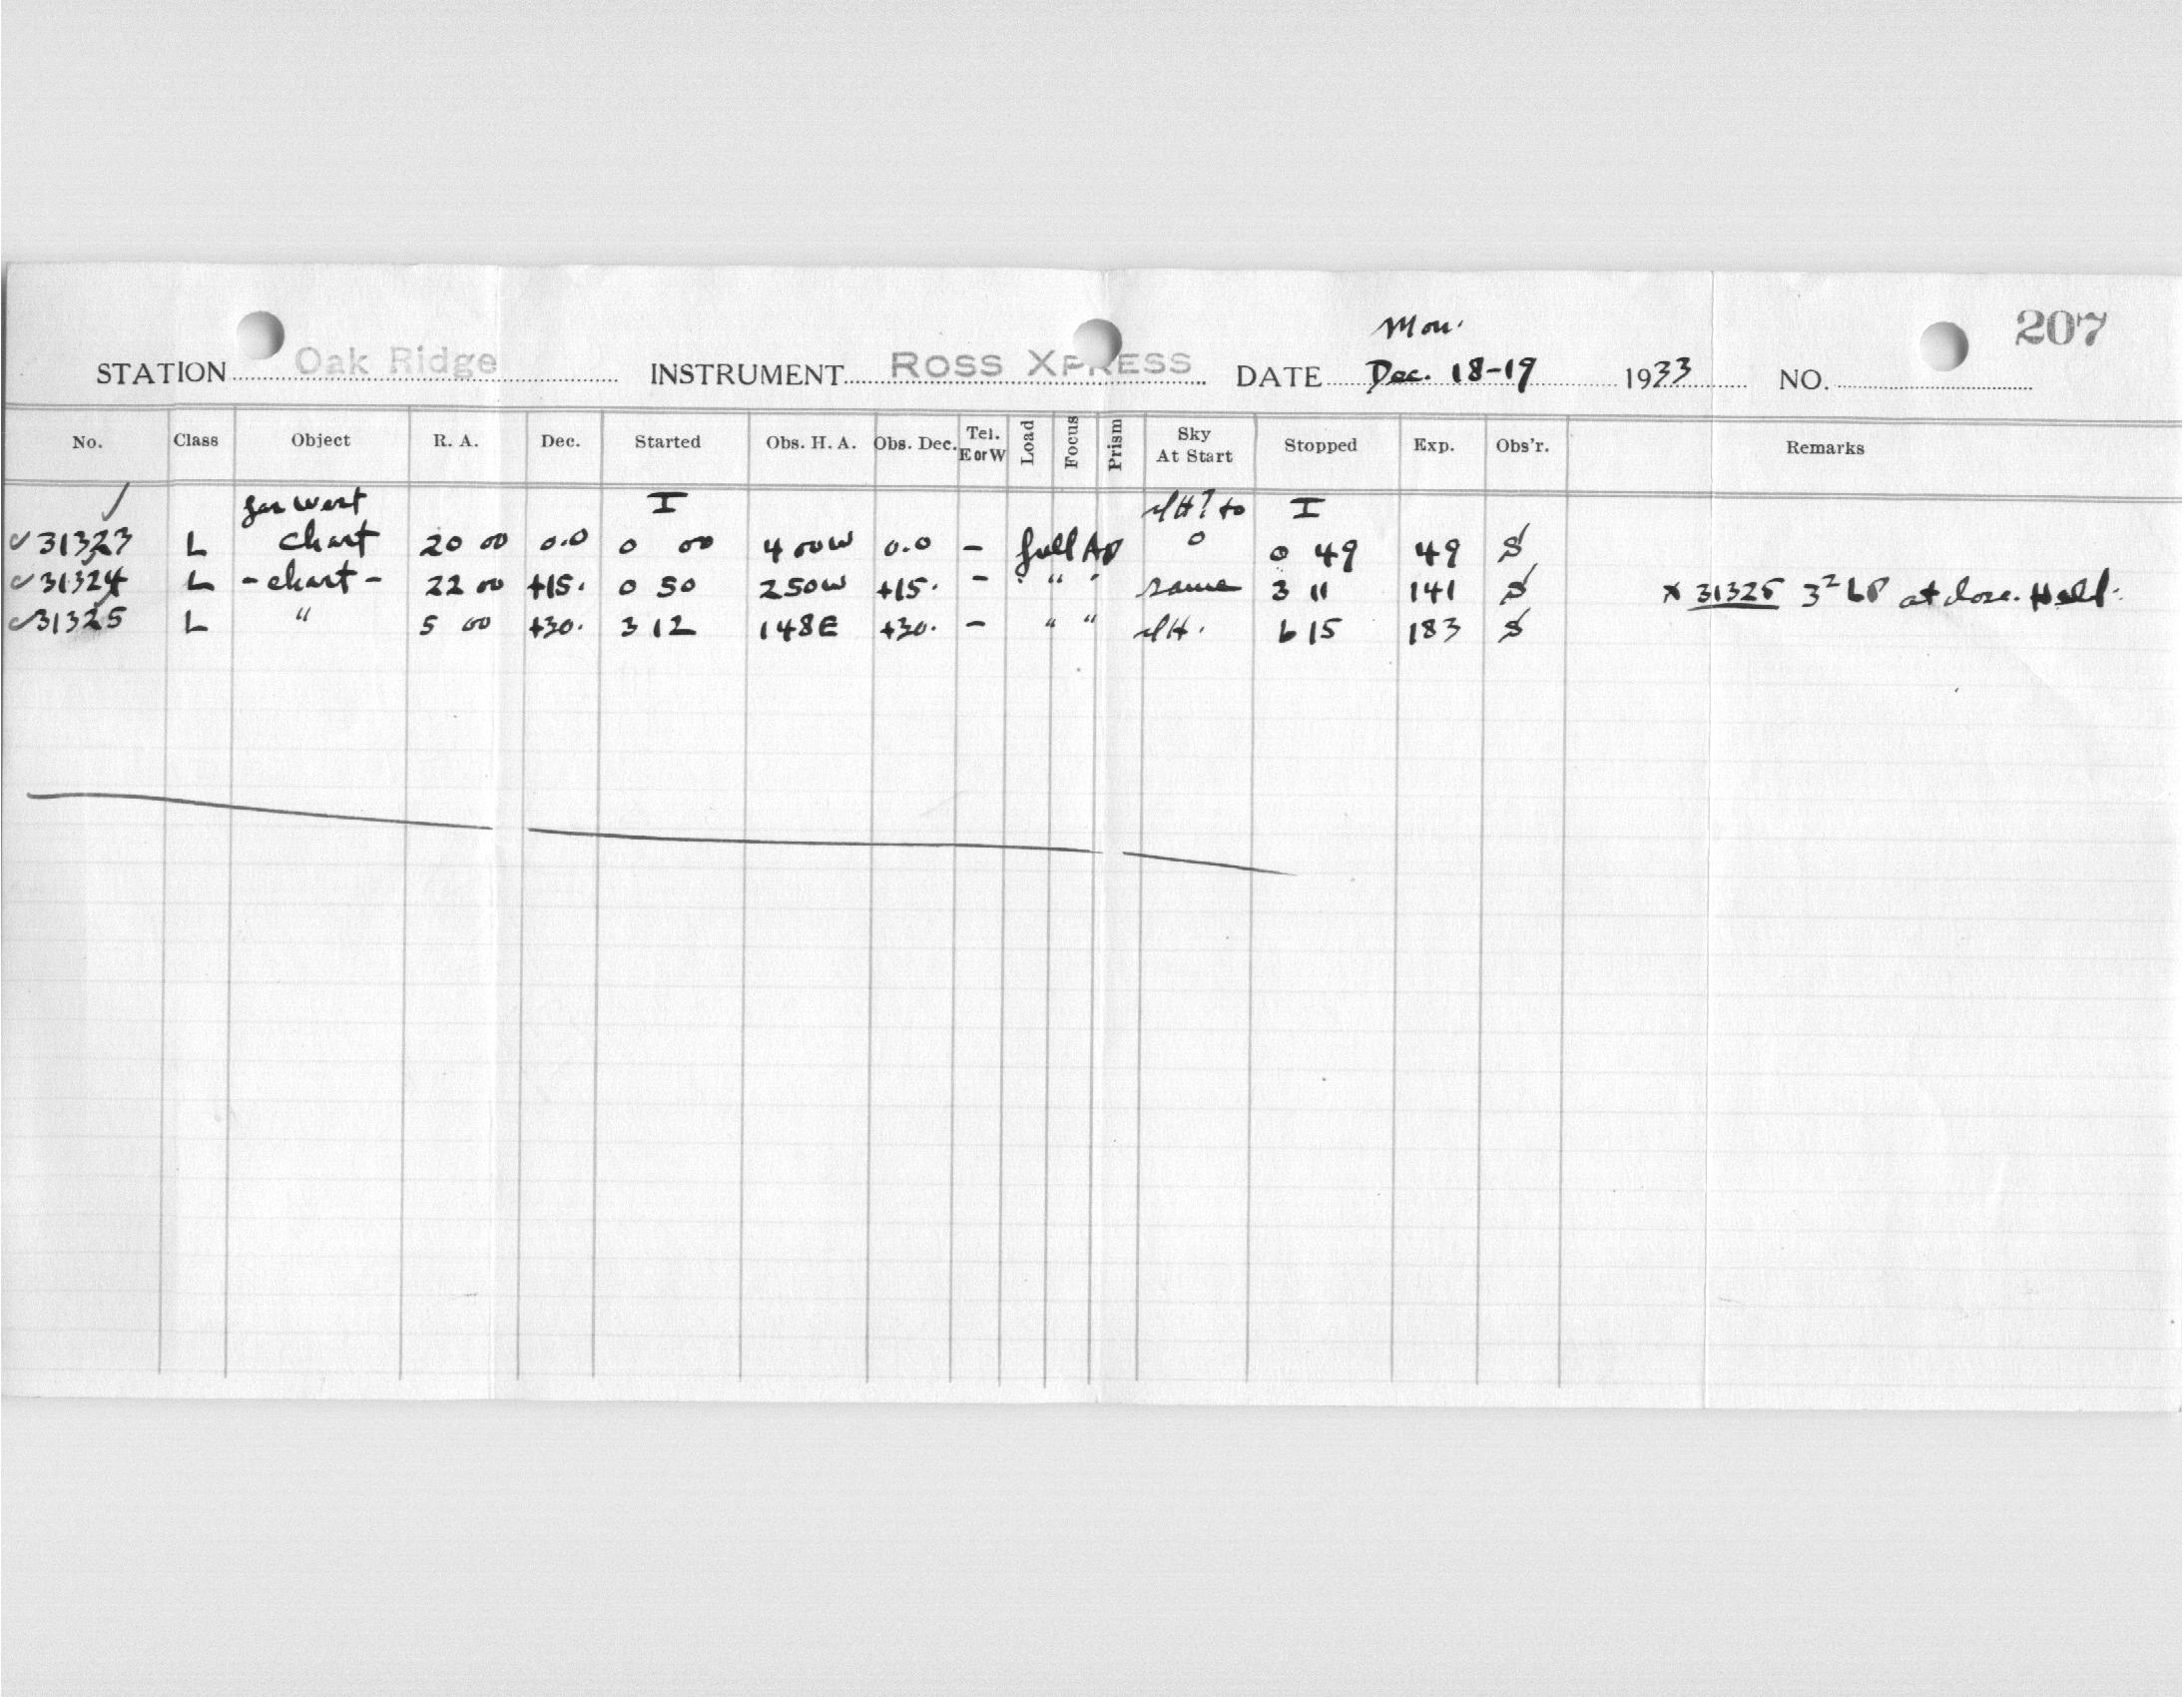 207
Mon.
STATION Oak Ridge INSTRUMENT ROSS XPRESS DATE Dec. 18-19 1933 NO.
No. Class Object R. A. Dec. Started Obs. H. A. Obs. Dec. Tel. E or W Load Focus Prism Sky At Start Stopped Exp. Obs'r. Remarks
far west I to I
31323 L chart 20 00 0.0 0 00 4 00W 0.0 - full Ap 0 0 49 49 S
31324 L -chart- 22 00 +15. 0 50 2 50W +15. - " " same 3 11 141 S x 31325 at close. Held.
31325 L " 5 00 +30. 3 12 1 48E +30. - " " 6 15 183 S